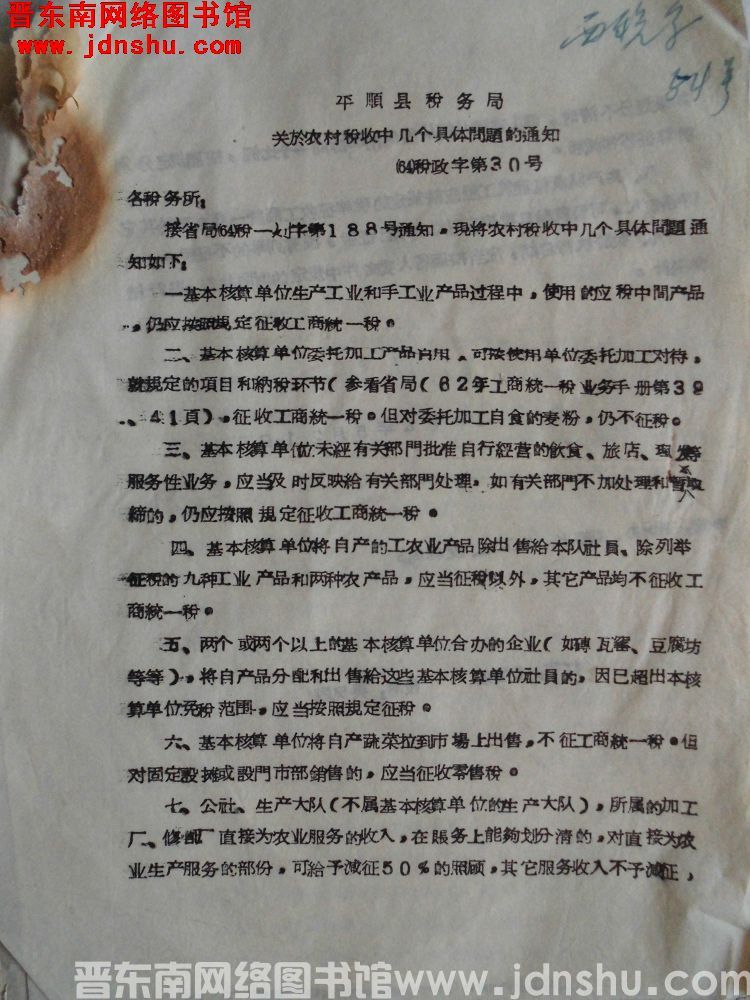 晋东南网络图书馆
www.jdnshu.com
54号
平順县税务局
关於农村税收中几个具体問題的通知
(64)税政字第30号
各税务所:
接省局(64)税一字第188号通知。現将农村税收中几个具体問題通
知如下:
一基本核算单位生产工业和手工业产品过程中,使用的应税中間产品
,仍应按照規定征收工商統一税。
二、基本核算单位委托加工产品自用,可按使用单位委托加工对待,
就規定的項目和納税环节(参看省局(62年工商統一税业务手册第39
、41頁)。征收工商統一税。但对委托加工自食的麦粉,仍不征税。
三、基本核算单位未經有关部門批准自行經营的飲食、旅店、理发等
服务性业务,应当及时反映給有关部門处理。如有关部門不加处理和取
締的,仍应按照規定征收工商統一税。
四、基本核算单位将自产的工农业产品除出售給本队社員、除列举
征税的九种工业产品和两种农产品,应当征税以外,其它产品均不征收工
商統一税。
五、两个或两个以上的基本核算单位合办的企业(如磚瓦窰、豆腐坊
等等),将自产品分配和出售給这些基本核算单位社員的,因已超出本核
算单位免税范围,应当按照規定征税。
六、基本核算单位将自产蔬菜拉到市場上出售,不征工商統一税。但
对固定設摊或設門市部銷售的,应当征收零售税。
七、公社、生产大队(不属基本核算单位的生产大队),所属的加工
厂、修配厂直接为农业服务的收入,在賬务上能夠划分清的,对直接为农
业生产服务的部份,可給予减征50%的照顾,其它服务收入不予减征,
晋东南网络图书馆www.jdnshu.com